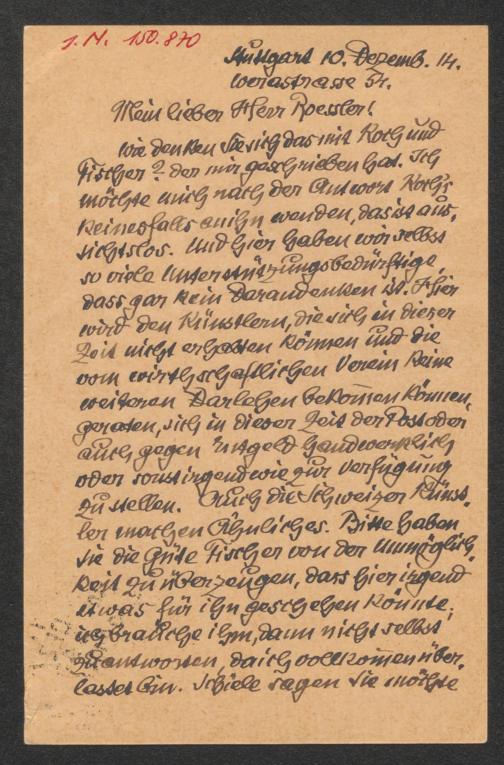 J. N. 150.870
Stuttgart 10. Dezemb. 14.
Werastrasse 54.
Mein lieber Herr Roessler!
Wie denken Sie sich das mit Koch und
Fischer? der mir geschrieben hat. Ich
möchte mich nach der Antwort Koch's
keinesfalls an ihn wenden, das ist aus-
sichtslos. Und hier haben wir selbst
so viele Unterstützungsbedürftige,
dass gar kein Darandenken ist. Hier
wird den Künstlern, die sich in dieser
Zeit nicht erhalten können und die
vom wirthschaftlichen Verein keine
weiteren Darlehen bekommen können,
geraten, sich in dieser Zeit der Post oder
auch gegen Entgeld handwerklich
oder sonst irgendwie zur Verfügung
zu stellen. Auch die Schweizer Künst-
ler machen Ähnliches. Bitte haben
Sie die Güte Fischer von der Unmöglich-
keit zu überzeugen, dass hier irgend
etwas für ihn geschehen könnte;
ich brauche ihm, dann nicht selbst
zu antworten, da ich vollkommen über-
lastet bin. Schiele sagen Sie möchte